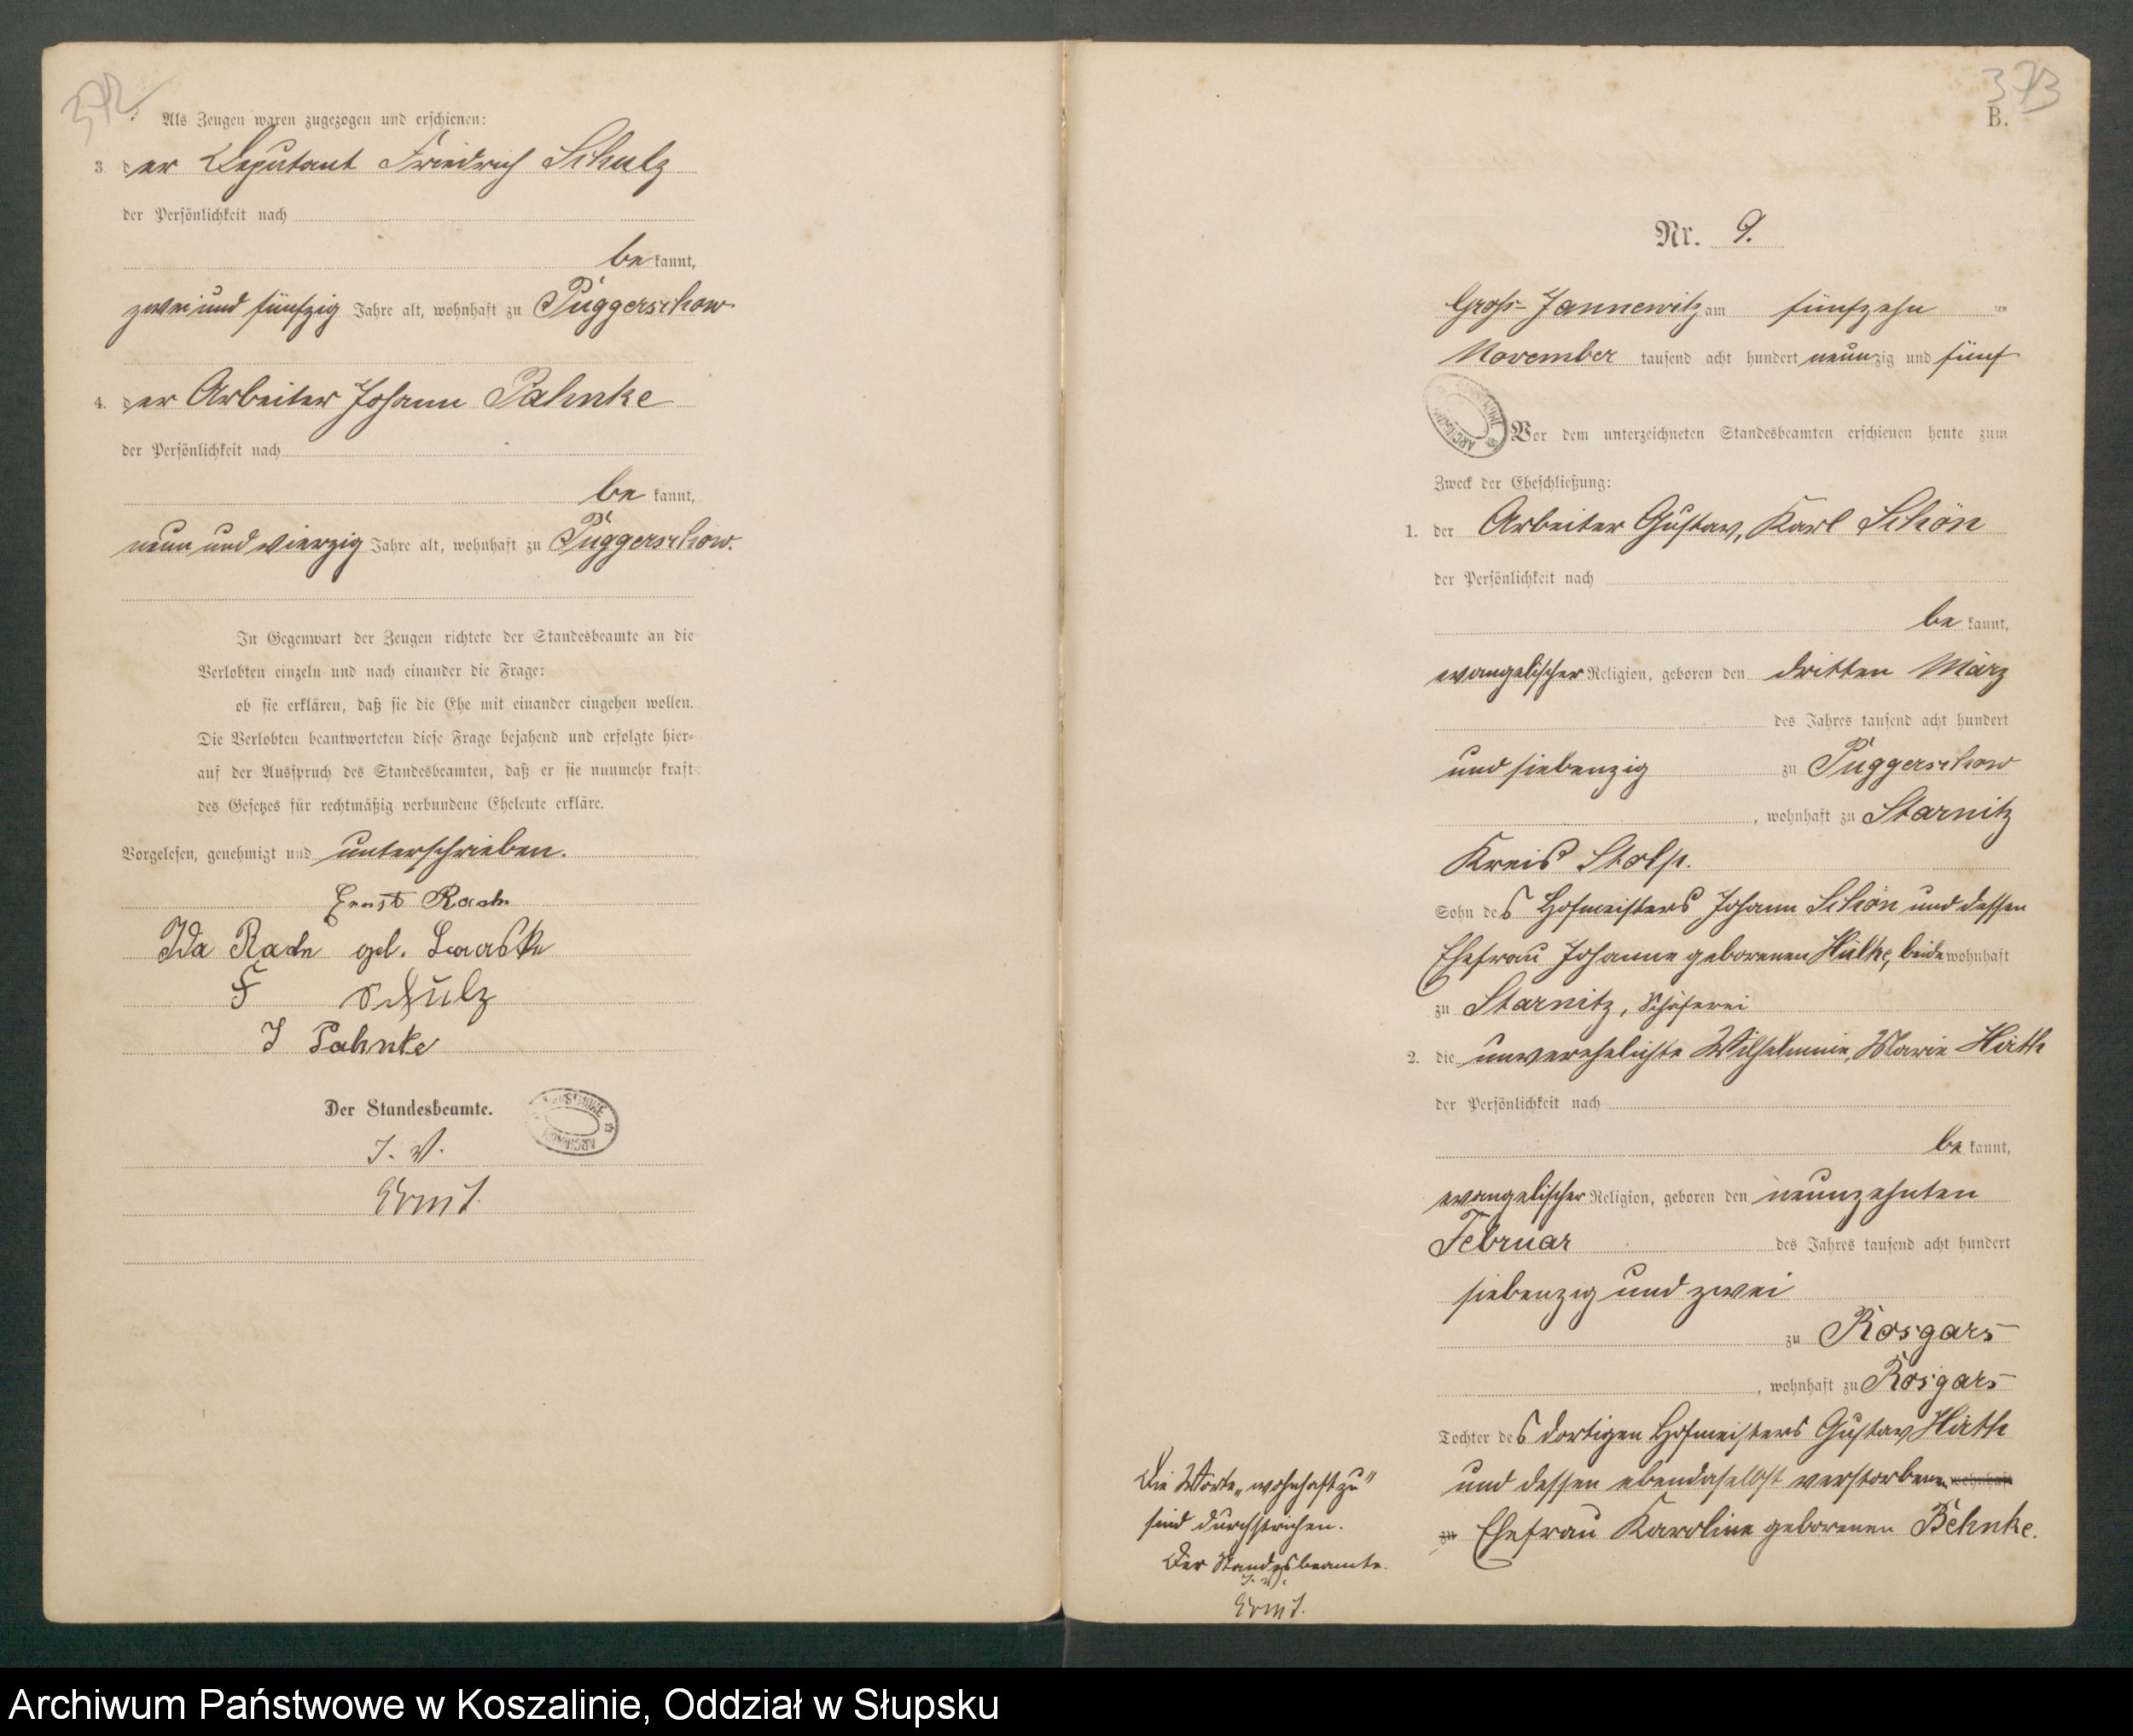 372
Als Zeugen waren zugezogen und erschienen:
3. der Deputant Friedrich Schulz
der Persönlichkeit nach
be kannt,
zwei und fünfzig Jahre alt, wohnhaft zu Puggerschow
4. der Arbeiter Johann Pahnke
der Persönlichkeit nach
be kannt,
neun und vierzig Jahre alt, wohnhaft zu Puggerschow.
In Gegenwart der Zeugen richtete der Standesbeamte an die
Verlobten einzeln und nach einander die Frage:
ob sie erklären, daß sie die Ehe mit einander eingehen wollen.
Die Verlobten beantworteten diese Frage bejahend und erfolgte hier-
auf der Ausspruch des Standesbeamten, daß er sie nunmehr kraft
des Gesetzes für rechtmäßig verbundene Eheleute erkläre.
Vorgelesen, genehmigt und unterschrieben.
Ernst Rach
Ida Rach geb. Laaske
F Schulz
J Pahnke
Der Standesbeamte.
J. V.
373
B.
Nr. 9.
Groß-Jannewitz am fünfzehn ten
November tausend acht hundert neunzig und fünf
Vor dem unterzeichneten Standesbeamten erschienen heute zum
Zweck der Eheschließung:
1. der Arbeiter Gustav, Karl Schön
der Persönlichkeit nach
be kannt,
evangelischer Religion, geboren den dritten März
des Jahres tausend acht hundert
und siebenzig zu Puggerschow
, wohnhaft zu Starnitz
Kreis Stolp.
Sohn des Hofmeisters Johann Schön und dessen
Ehefrau Johanne geborenen beide wohnhaft
zu Starnitz, Schäferei
2. die unverehelichte Wilhelmine, Marie
der Persönlichkeit nach
be kannt,
evangelischer Religion, geboren den neunzehnten
Februar des Jahres tausend acht hundert
siebenzig und zwei
zu Rosgars
, wohnhaft zu Rosgars
Tochter des dortigen Hofmeisters Gustav
und dessen ebendaselbst verstorbenen wohnhaft
zu Ehefrau Karoline geborenen Behnke.
Die Worte „wohnhaft zu"
sind durchstrichen.
Der Standesbeamte.
J. V.
Archiwum Państwowe w Koszalinie, Oddział w Słupsku